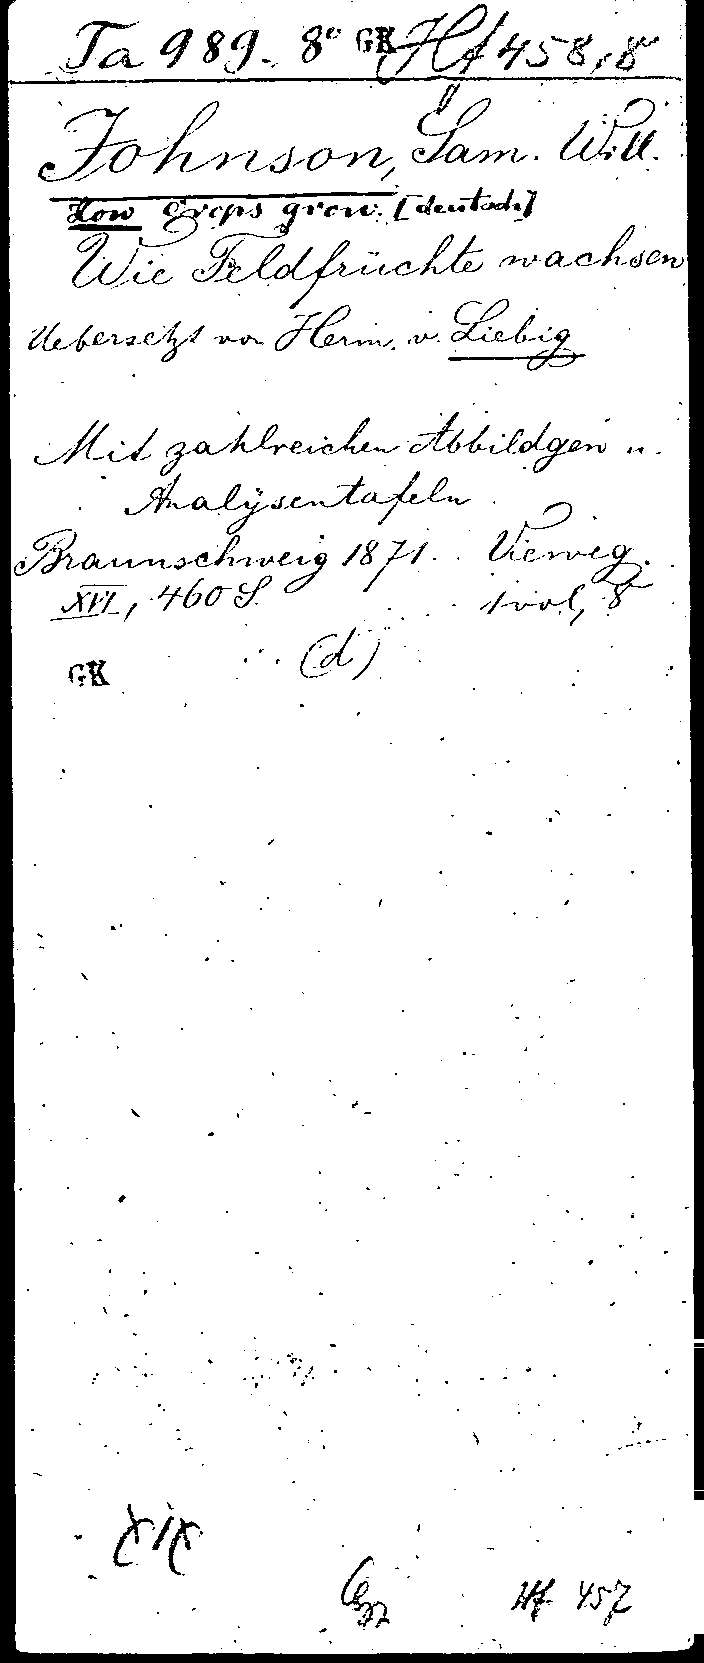 Ta 989. 8° GK Hf 458, 8°
Johnson, Sam. Will.
How crops grow. [deutsch]
Wie Feldfrüchte wachsen
Uebersetzt von Herm. v. Liebig
Mit zahlreichen Abbildgen u.
Analysentafeln
Braunschweig 1871. Vieweg.
XVI, 460 S. 1 vol, 8°
GK (d)
XIX
Hf 457